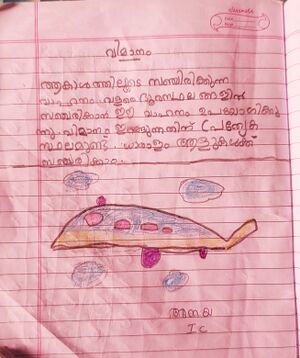 വിമാനം
ആകാശത്തിലൂടെ സഞ്ചരിക്കുന്ന
വാഹനം വളരെ ദൂരസ്ഥലങ്ങളിൽ
സഞ്ചരിക്കാൻ ഈ വാഹനം ഉപയോഗിക്കു
ന്നു. വിമാനം ഇറങ്ങുന്നതിന് പ്രത്യേക
സ്ഥലമുണ്ട്. ധാരാളം ആളുകൾക്ക്
സഞ്ചരിക്കാം.
അനയ
I c